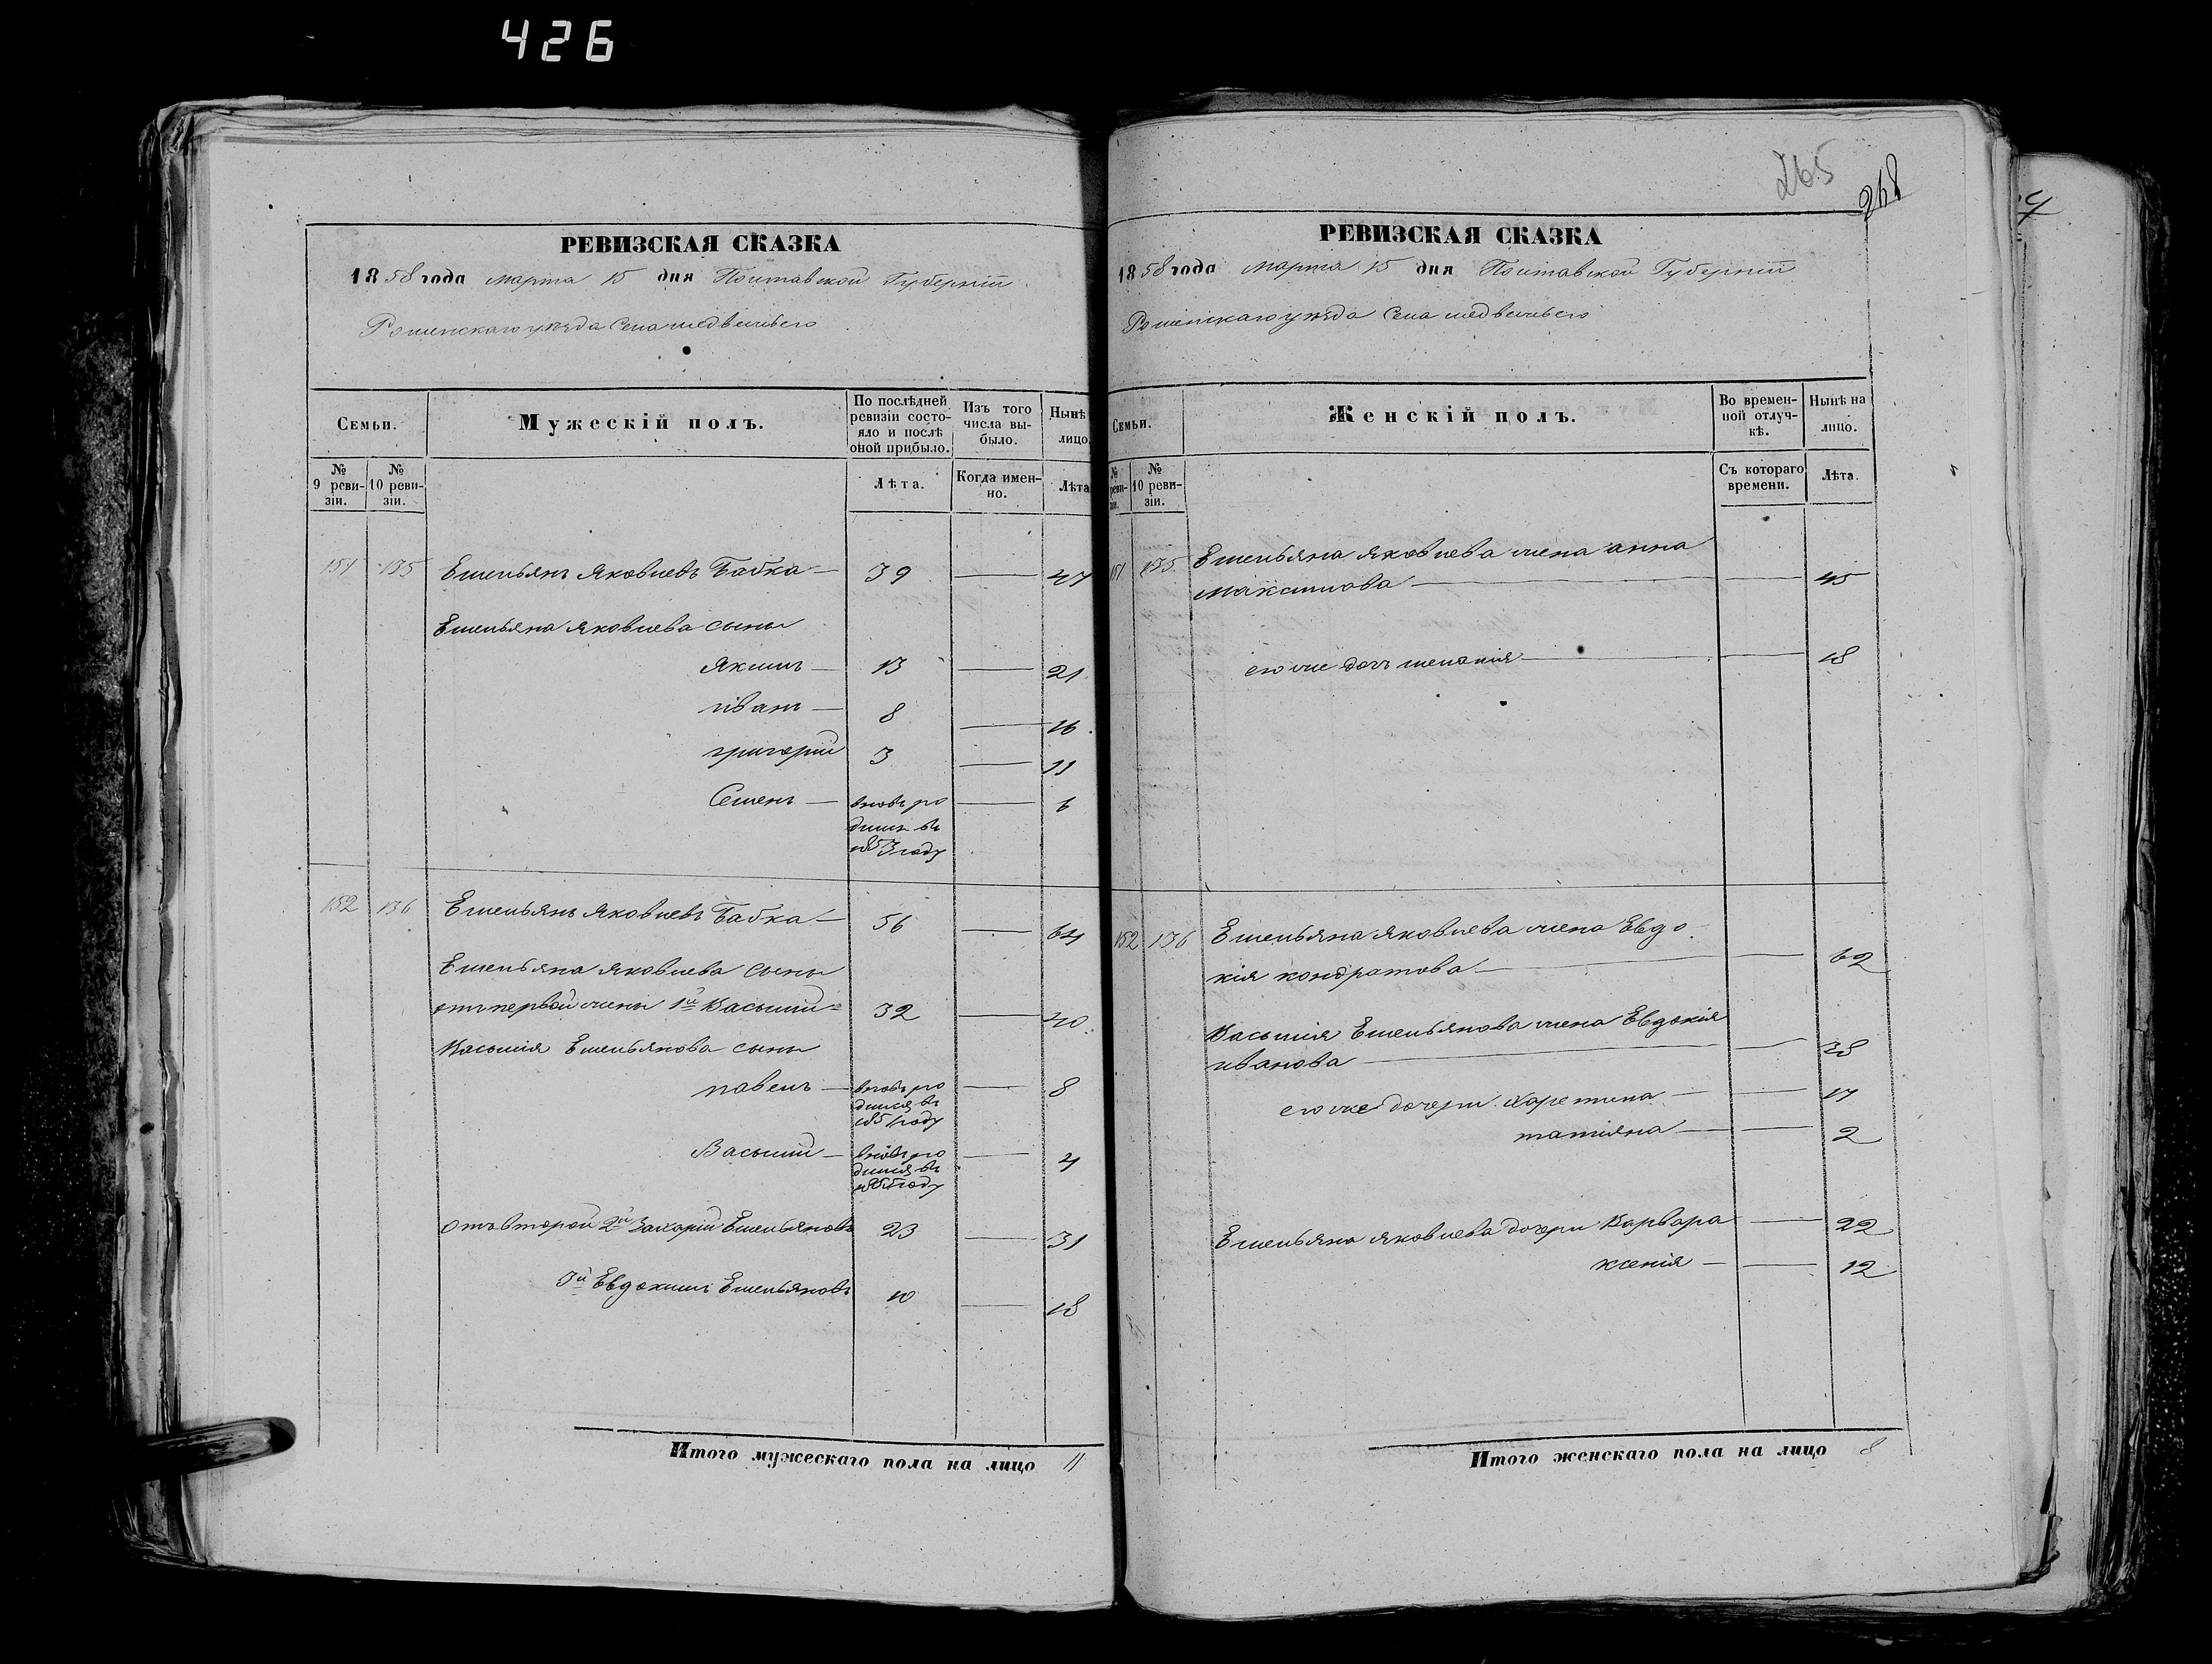 426
РЕВИЗСКАЯ СКАЗКА
1858 года марта 15 дня Полтавской Губерніи
Роменскаго уѣзда Села медвежьего
Семьи.
Мужескій полъ.
По послѣдней ревизіи состо-
яло и послѣ
оной прибыло.
Изъ того
числа вы-
было.
Нынѣ
лицо.
№
9 реви-
зіи.
№
10 реви-
зіи.
Лѣта.
Когда имен-
но.
Лѣта
151 135 Емельянъ Яковлевъ Бабка — 39 — 47
Емельяна Яковлева сыны
Якимъ — 13 — 21
иванъ — 8 — 16
григорий 3 — 11
Семенъ — вновь ро — 6
дилъ въ
1853 году
152 136 Емельянъ Яковлевъ Бабка — 56 — 64
Емельяна Яковлева сыны
отъ первой жены 1й Василий 32 — 40
Василия Емельянова сыны
павелъ — вновь ро — 8
дился въ
году
Василий — вновь ро — 4
дился въ
году
отъ второй 2й Захарий Емельяновъ 23 — 31
3й Евдокимъ Емельяновъ 10 — 18
Итого мужескаго пола на лицо 11
265
268
РЕВИЗСКАЯ СКАЗКА
1858 года марта 15 дня Полтавской Губерніи
Роменскаго уѣзда Села медвежьего
Семьи.
Женскій полъ.
Во времен-
ной отлуч-
кѣ.
Нынѣ на
лицо.
№
реви-
зіи.
№
10 реви-
зіи.
Съ котораго
времени.
Лѣта.
151 135 Емельяна Яковлева жена анна
Максимова — — 45
его же дочь мелания — — 18
152 136 Емельяна Яковлева жена Евдо
кія кондратова — — 62
Василия Емельянова жена Евдокия
иванова — — 38
его же дочери Харетина — — 17
татияна — — 2
Емельяна Яковлева дочери Варвара — 22
ксенія — — 12
Итого женскаго пола на лицо 8